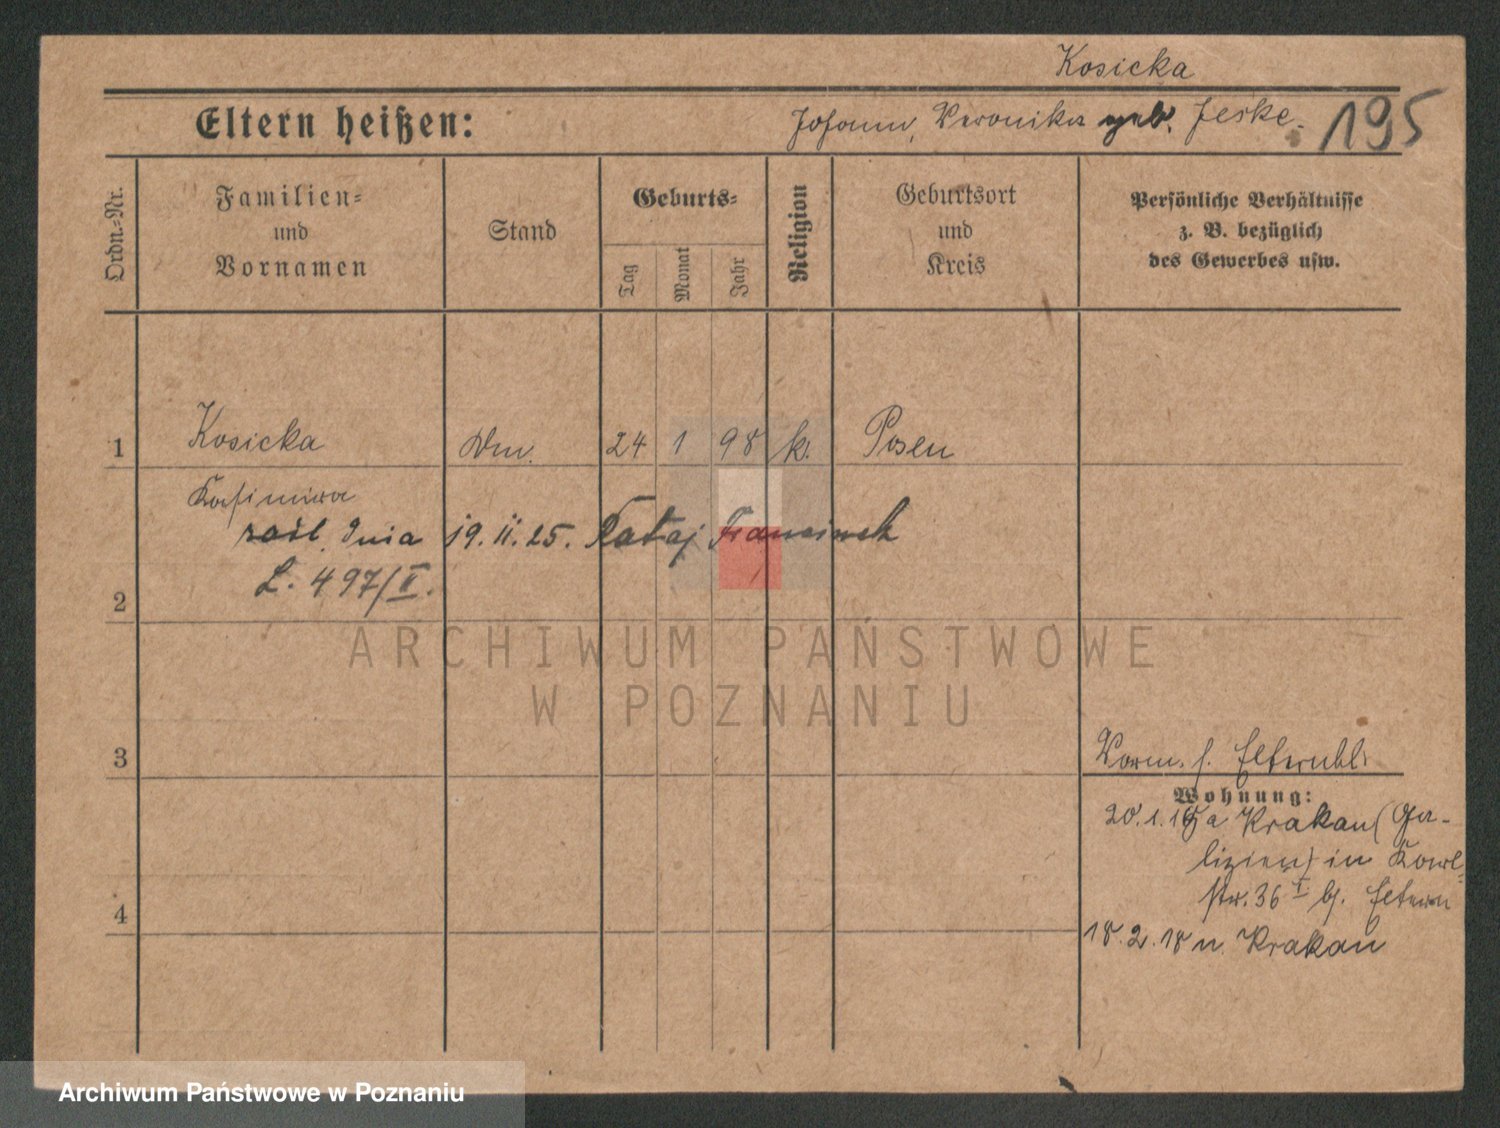 Kosicka
Eltern heißen: Johann, Veronika geb. Jeske.
195
Ordn.-Nr.
Familien-
und
Vornamen
Stand
Geburts-
Tag
Monat
Jahr
Religion
Geburtsort
und
Kreis
Persönliche Verhältnisse
z. B. bezüglich
des Gewerbes usw.
1 Kosicka Dm. 24 1 98 k. Posen
Kasimira
zaśl. dnia 19.II.25. Rataj Franciszek
L. 497/II.
2
ARCHIWUM PAŃSTWOWE
W POZNANIU
3
Vorm. s. Elternbl.
Wohnung:
20.1.16 a Krakau (Ga-
lizien) in Karl-
str. 36 I b. Eltern
4
18.2.18 n. Krakau
Archiwum Państwowe w Poznaniu